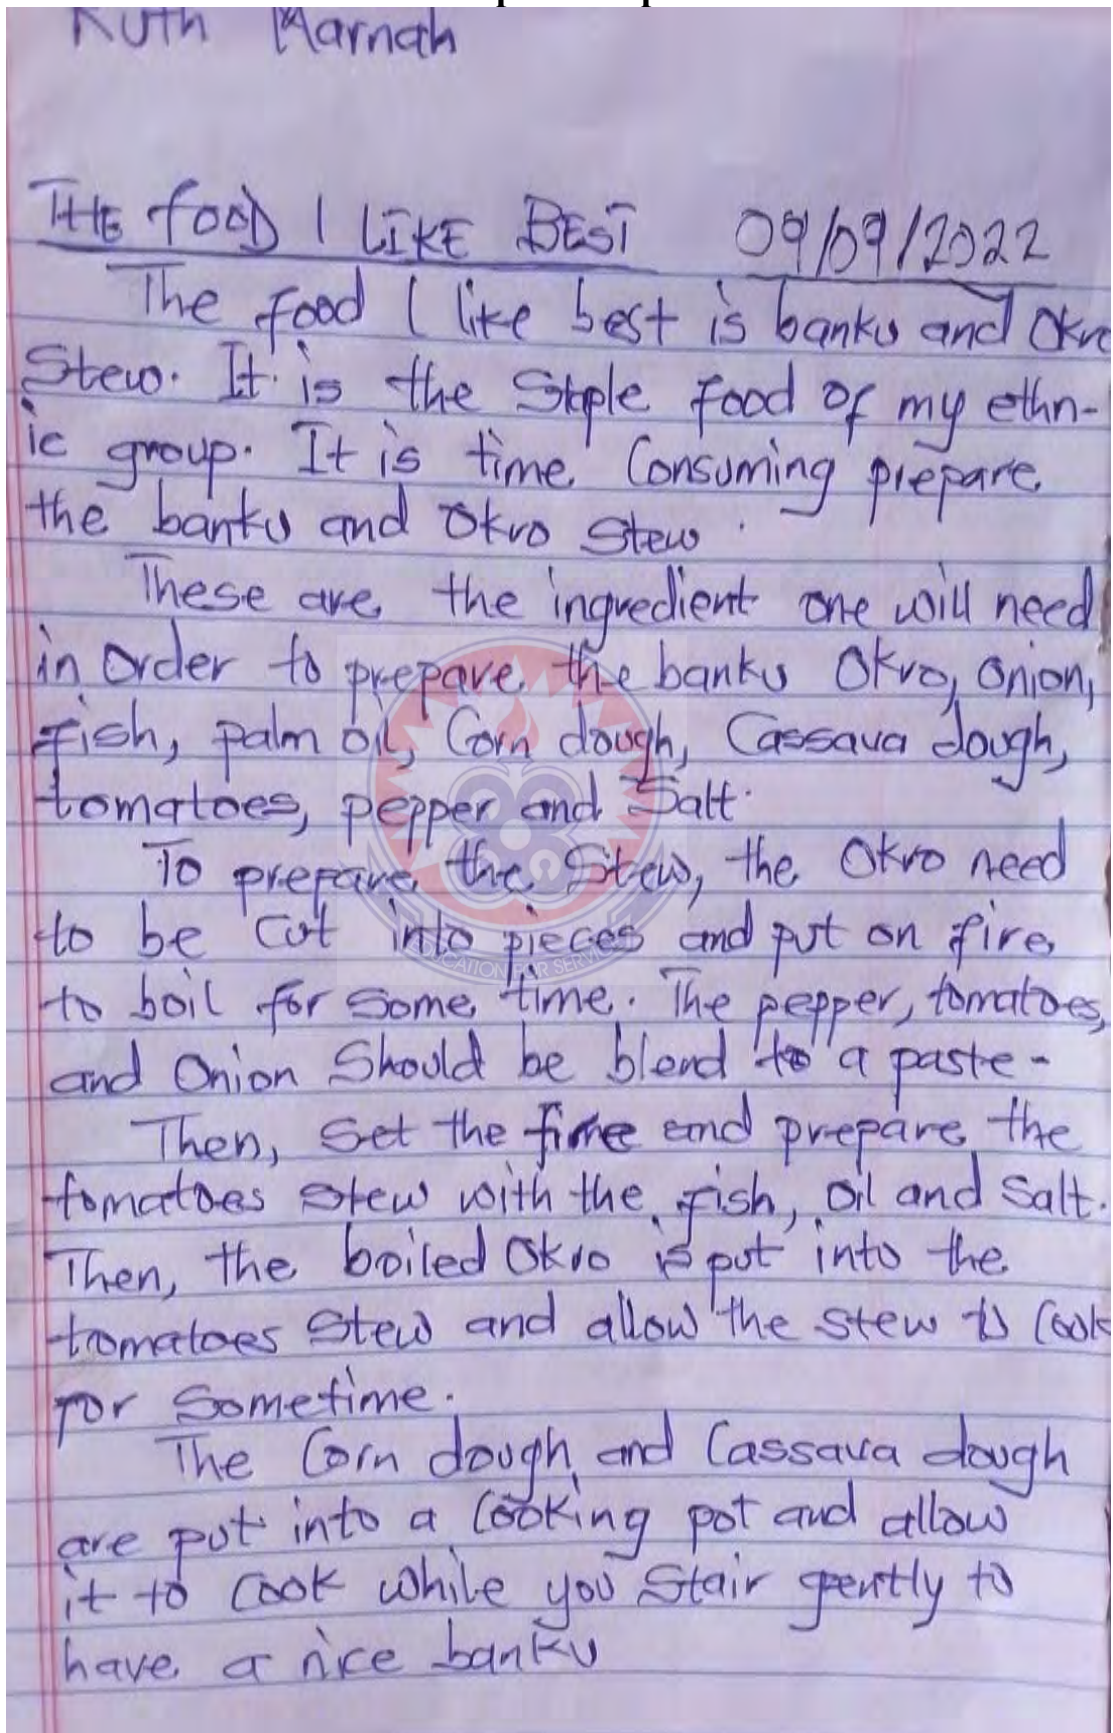 Ruth Marnah
THE fOOD I LIKE BEST 09/09/2022
The food I like best is banku and Okro
Stew. It is the Staple food of my ethn-
ic group. It is time Consuming prepare
the banku and Okro Stew.
These are the ingredient one will need
in Order to prepare the banku Okro, Onion,
fish, palm oil, Corn dough, Cassava dough,
tomatoes, pepper and Salt.
To prepare the Stew, the Okro need
to be Cut into pieces and put on fire
to boil for Some time. The pepper, tomatoes,
and Onion Should be blend to a paste-
Then, Set the fire and prepare the
tomatoes stew with the fish, Oil and Salt.
Then, the boiled Okro is put into the
tromatoes Stew and allow the stew to Cook
for Sometime.
The Corn dough and Cassava dough
are put into a Cooking pot and allow
it to Cook while you Stair gently to
have a nice banku
EDUCATION FOR SERVICE